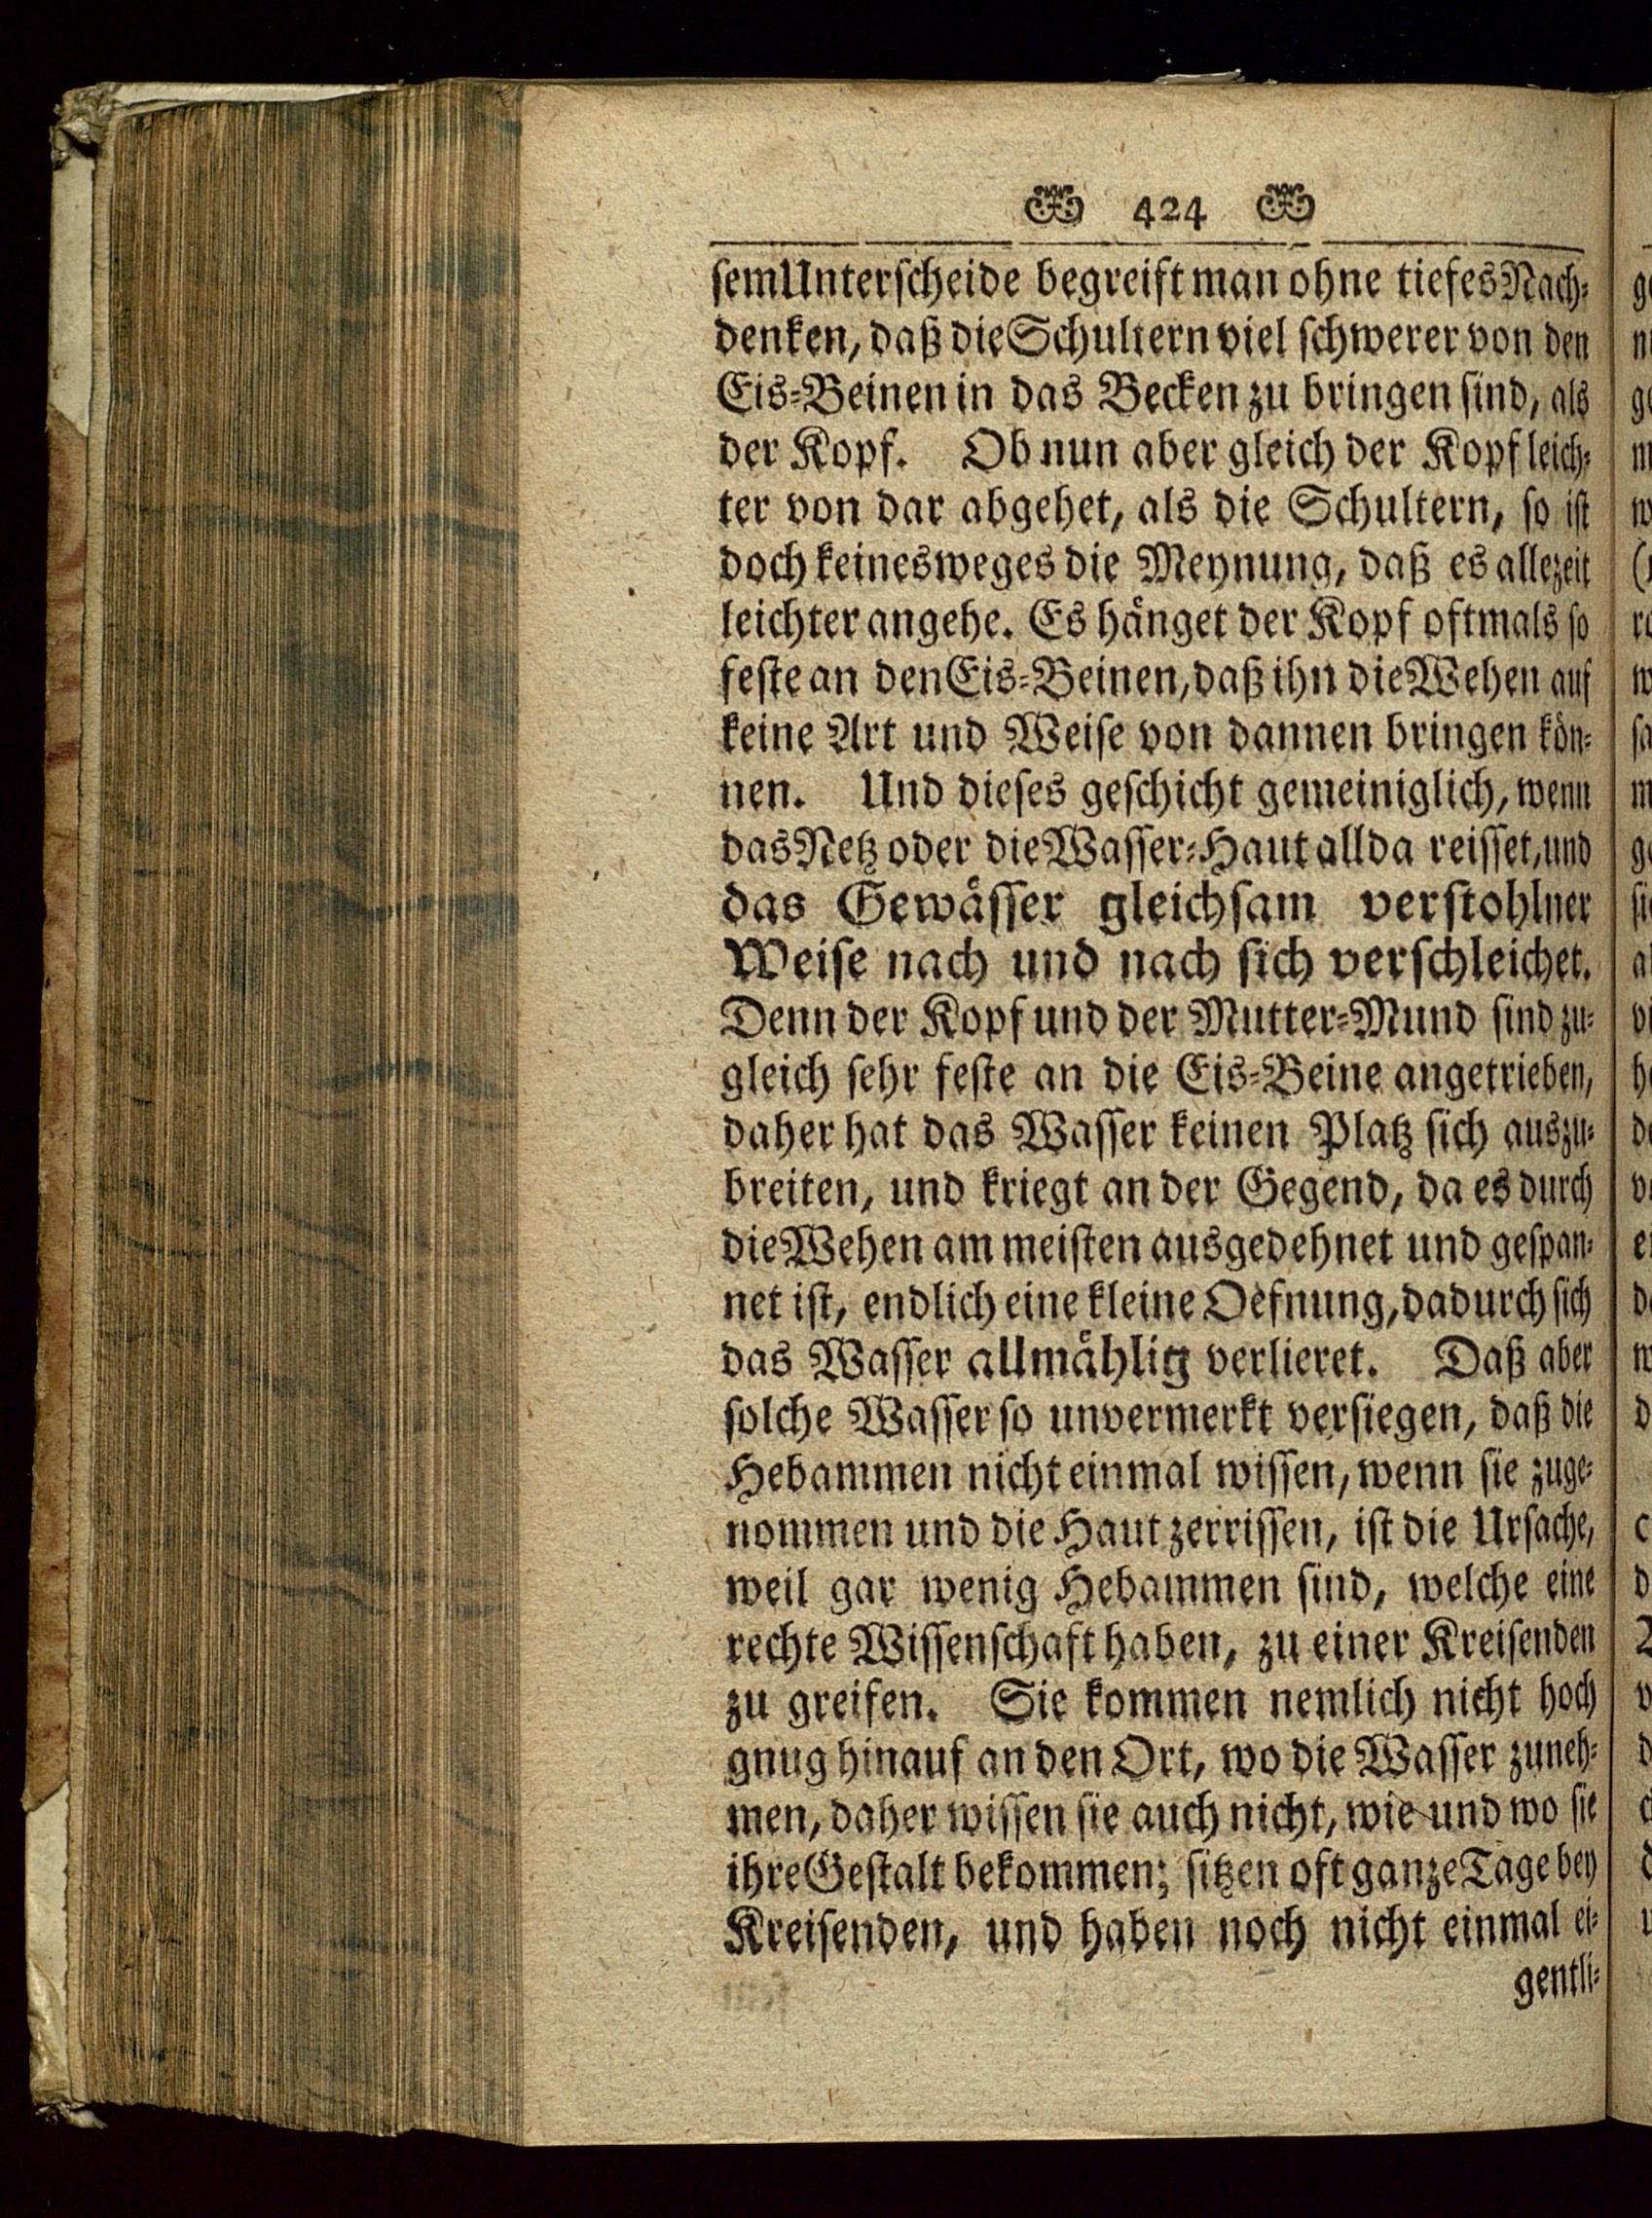 424
semUnterscheide begreift man ohne tiefes Nach-
denken, daß die Schultern viel schwerer von den
Eis-Beinen in das Becken zu bringen sind, als
der Kopf. Ob nun aber gleich der Kopf leich-
ter von dar abgehet, als die Schultern, so ist
doch keinesweges die Meynung, daß es allezeit
leichter angehe. Es hänget der Kopf oftmals so
feste an den Eis-Beinen, daß ihn die Wehen auf
keine Art und Weise von dannen bringen kön-
nen. Und dieses geschicht gemeiniglich, wenn
das Netz oder die Wasser-Haut allda reisset, und
das Gewässer gleichsam verstohlner
Weise nach und nach sich verschleichet.
Denn der Kopf und der Mutter-Mund sind zu-
gleich sehr feste an die Eis-Beine angetrieben,
daher hat das Wasser keinen Platz sich auszu-
breiten, und kriegt an der Gegend, da es durch
die Wehen am meisten ausgedehnet und gespan-
net ist, endlich eine kleine Oefnung, dadurch sich
das Wasser allmählig verlieret. Daß aber
solche Wasser so unvermerkt versiegen, daß die
Hebammen nicht einmal wissen, wenn sie zuge-
nommen und die Haut zerrissen, ist die Ursache,
weil gar wenig Hebammen sind, welche eine
rechte Wissenschaft haben, zu einer Kreisenden
zu greifen. Sie kommen nemlich nicht hoch
gnug hinauf an den Ort, wo die Wasser zuneh-
men, daher wissen sie auch nicht, wie und wo sie
ihre Gestalt bekommen; sitzen oft ganze Tage bey
Kreisenden, und haben noch nicht einmal ei-
gentli-